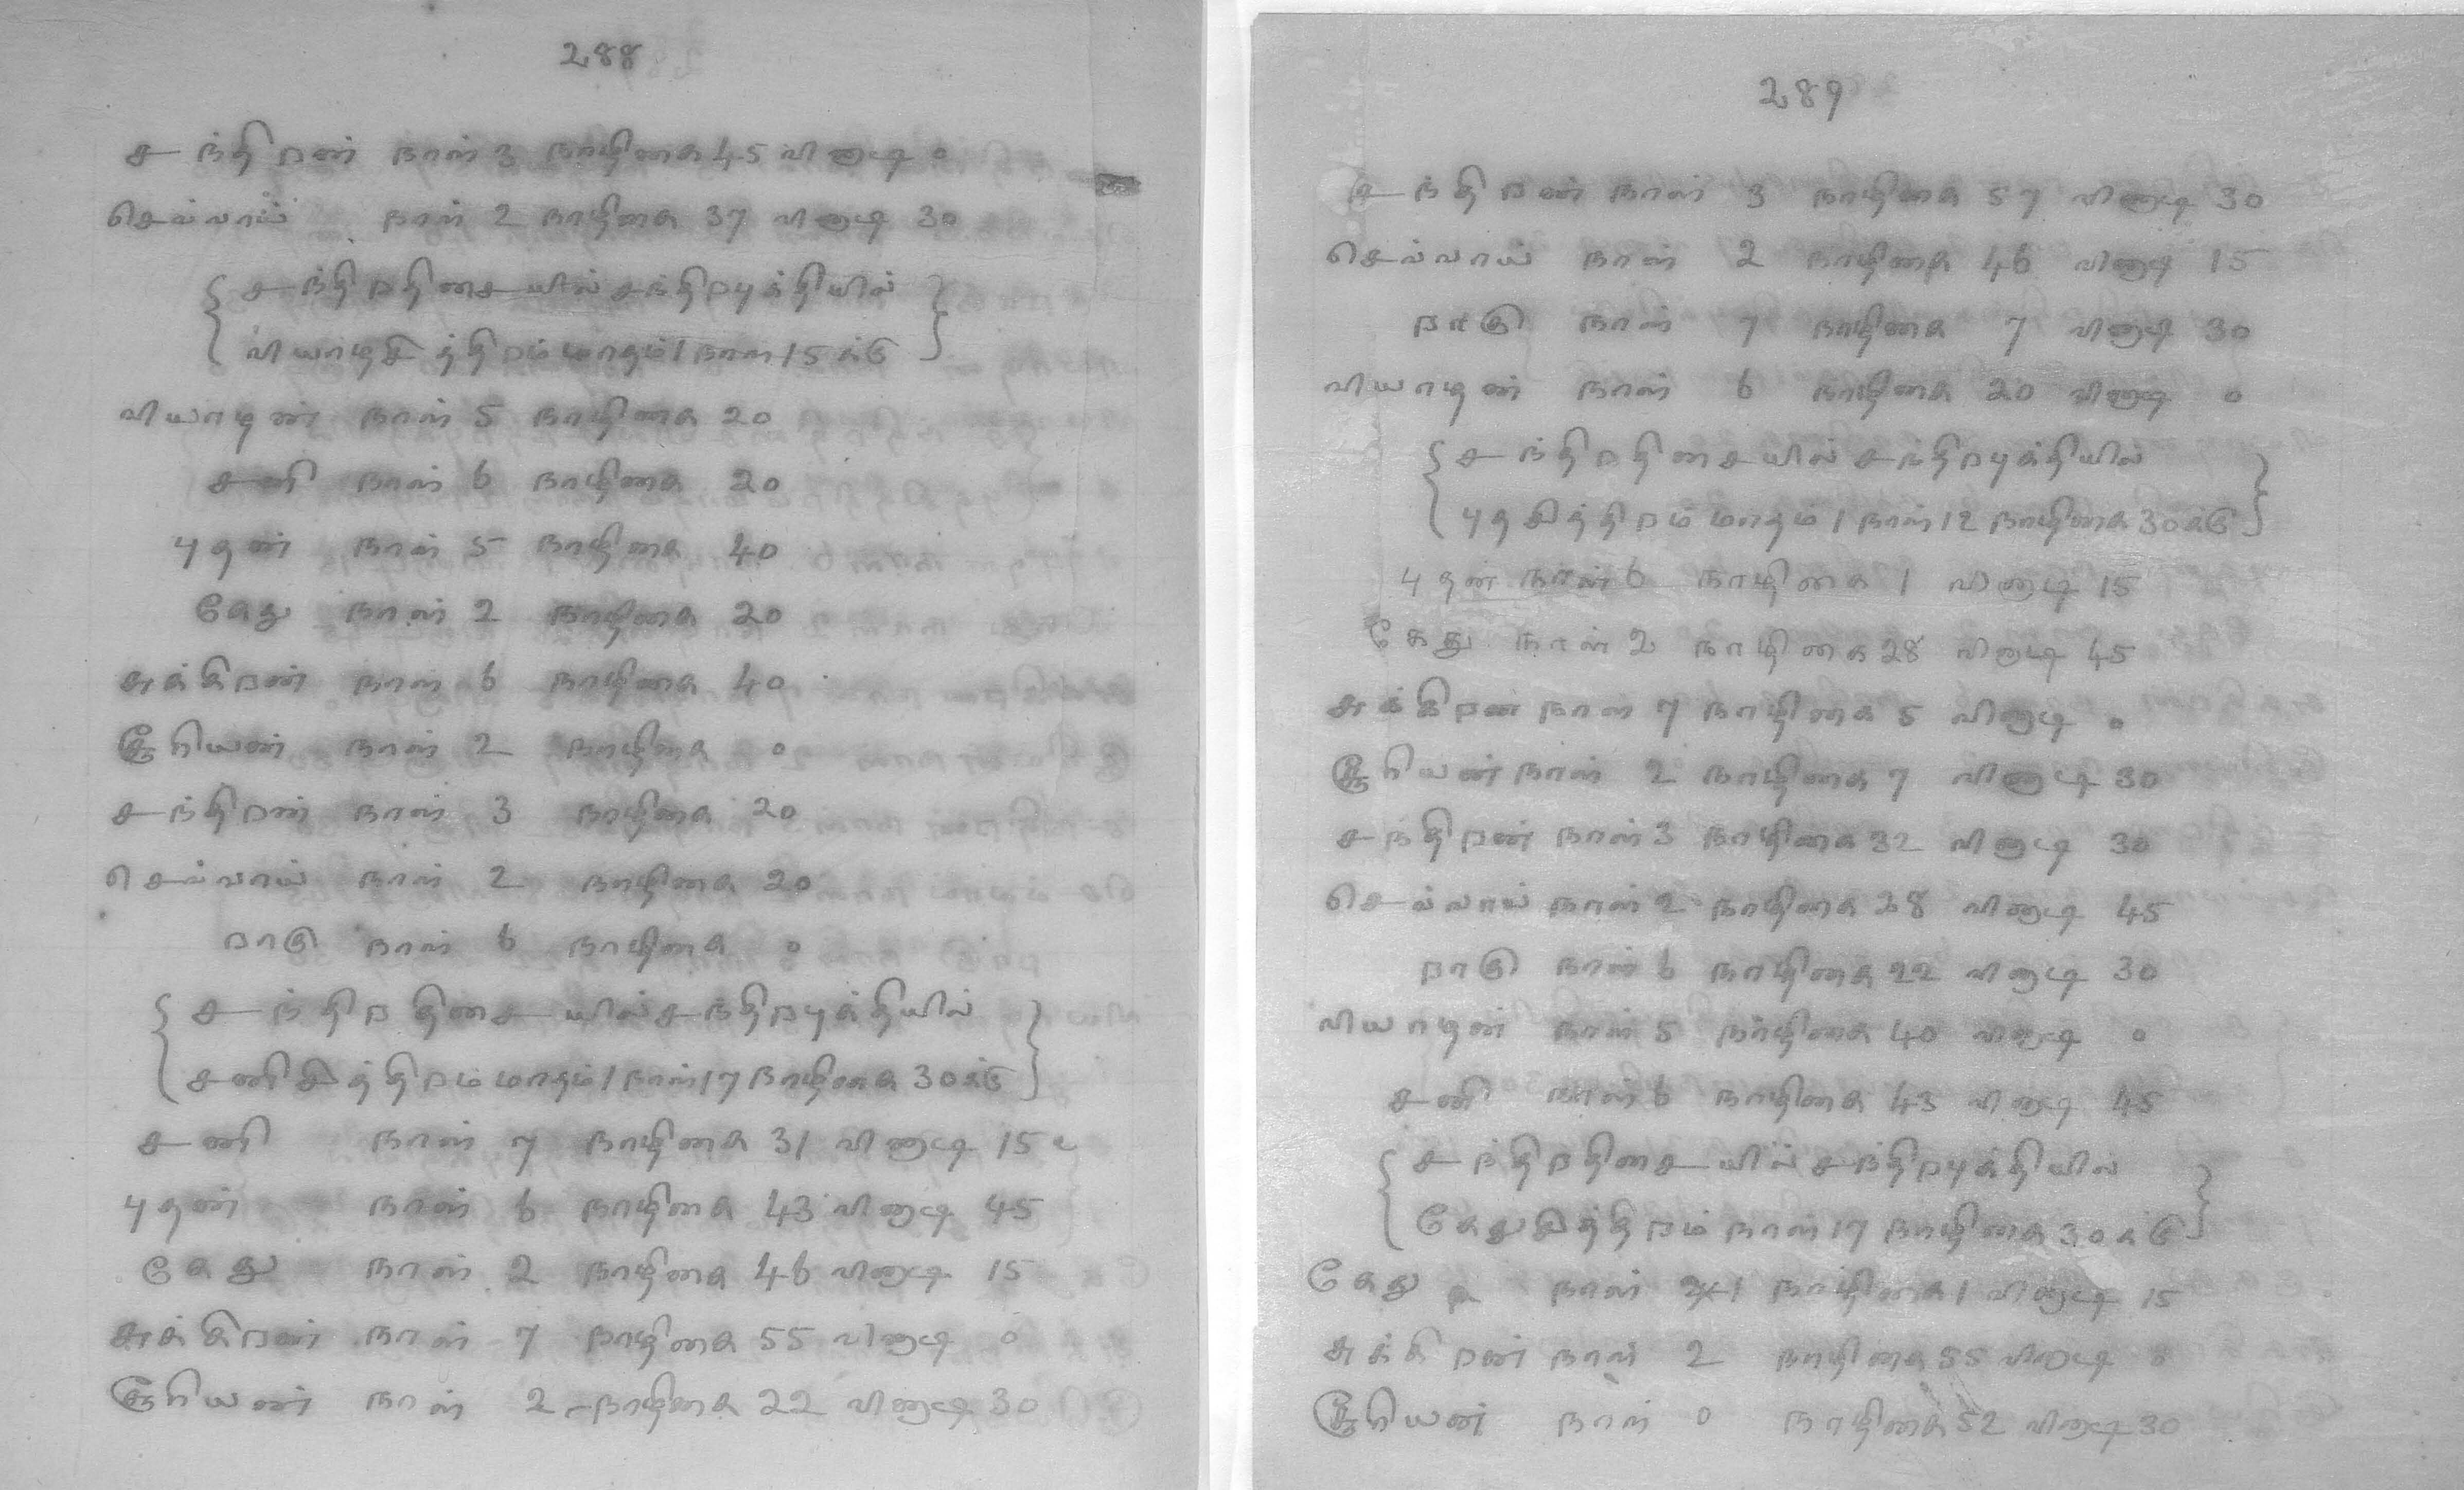 288
சந்திரன் நாள் 3 நாழிகை 45 வினாடி 0
செவ்வாய் நாள் 2 நாழிகை 37 வினாடி 30
{ சந்திரதிசையில் சந்திரபுக்தியில்
வியாழசித்திரம் மாதம் 1 நாள் 15 க்கு }
வியாழன் நாள் 5 நாழிகை 20
சனி நாள் 6 நாழிகை 20
புதன் நாள் 5 நாழிகை 40
கேது நாள் 2 நாழிகை 20
சுக்கிரன் நாள் 6 நாழிகை 40
சூரியன் நாள் 2 நாழிகை 0
சந்திரன் நாள் 3 நாழிகை 20
செவ்வாய் நாள் 2 நாழிகை 20
ராகு நாள் 6 நாழிகை 0
{ சந்திரதிசையில் சந்திரபுக்தியில்
சனிசித்திரம் மாதம் 1 நாள் 17 நாழிகை 30 க்கு }
சனி நாள் 7 நாழிகை 31 வினாடி 15
புதன் நாள் 6 நாழிகை 43 வினாடி 45
கேது நாள் 2 நாழிகை 46 வினாடி 15
சுக்கிரன் நாள் 7 நாழிகை 55 வினாடி 0
சூரியன் நாள் 2 நாழிகை 22 வினாடி 30
289
சந்திரன் நாள் 3 நாழிகை 57 வினாடி 30
செவ்வாய் நாள் 2 நாழிகை 46 வினாடி 15
ராகு நாள் 7 நாழிகை 7 வினாடி 30
வியாழன் நாள் 6 நாழிகை 20 வினாடி 0
{ சந்திரதிசையில் சந்திரபுக்தியில்
புதசித்திரம் மாதம் 1 நாள் 12 நாழிகை 30 க்கு }
புதன் நாள் 6 நாழிகை 1 வினாடி 15
கேது நாள் 2 நாழிகை 28 வினாடி 45
சுக்கிரன் நாள் 7 நாழிகை 5 வினாடி 0
சூரியன் நாள் 2 நாழிகை 7 வினாடி 30
சந்திரன் நாள் 3 நாழிகை 32 வினாடி 30
செவ்வாய் நாள் 2 நாழிகை 28 வினாடி 45
ராகு நாள் 6 நாழிகை 22 வினாடி 30
வியாழன் நாள் 5 நாழிகை 40 வினாடி 0
சனி நாள் 6 நாழிகை 43 வினாடி 45
{ சந்திரதிசையில் சந்திரபுக்தியில்
கேதுசித்திரம் நாள் 17 நாழிகை 30 க்கு }
கேது நாள் 1 நாழிகை 1 வினாடி 15
சுக்கிரன் நாள் 2 நாழிகை 55 வினாடி
சூரியன் நாள் 0 நாழிகை 52 வினாடி 30